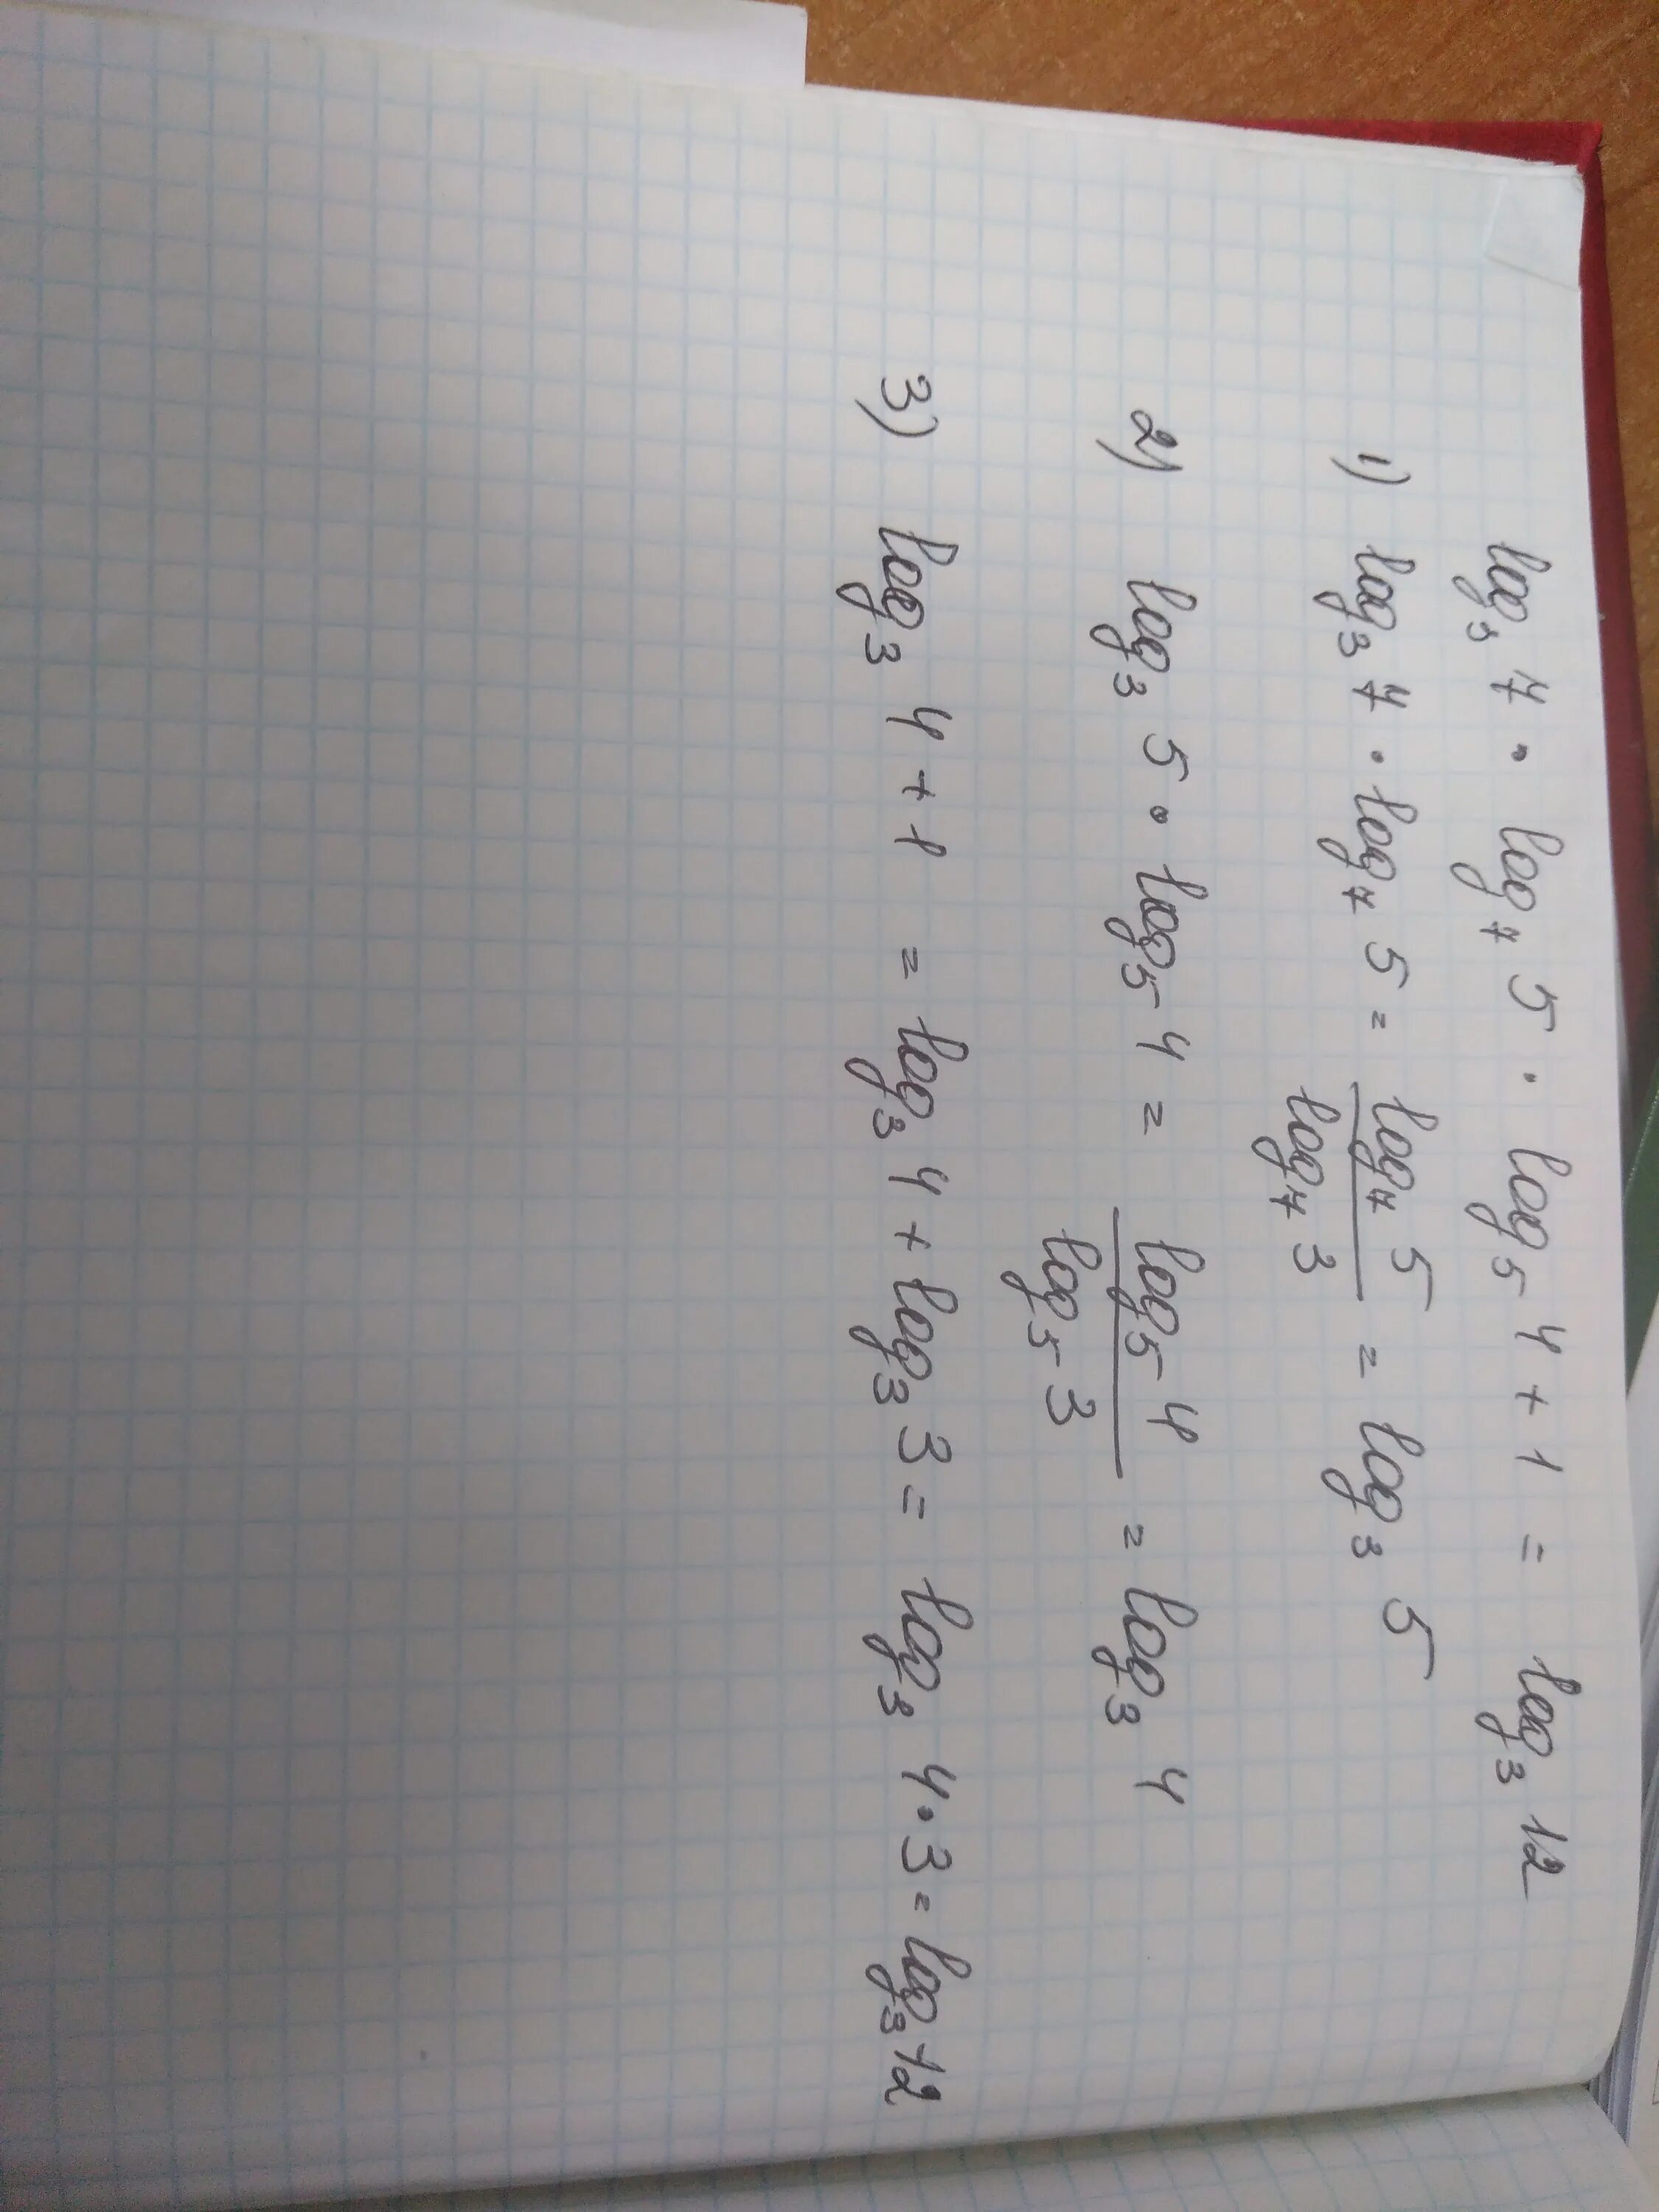 log₃ 7 · log₇ 5 · log₅ 4 + 1 = log₃ 12
1) log₃ 7 · log₇ 5 = log₇ 5 / log₇ 3 = log₃ 5
2) log₃ 5 · log₅ 4 = log₅ 4 / log₅ 3 = log₃ 4
3) log₃ 4 + 1 = log₃ 4 + log₃ 3 = log₃ 4 · 3 = log₃ 12